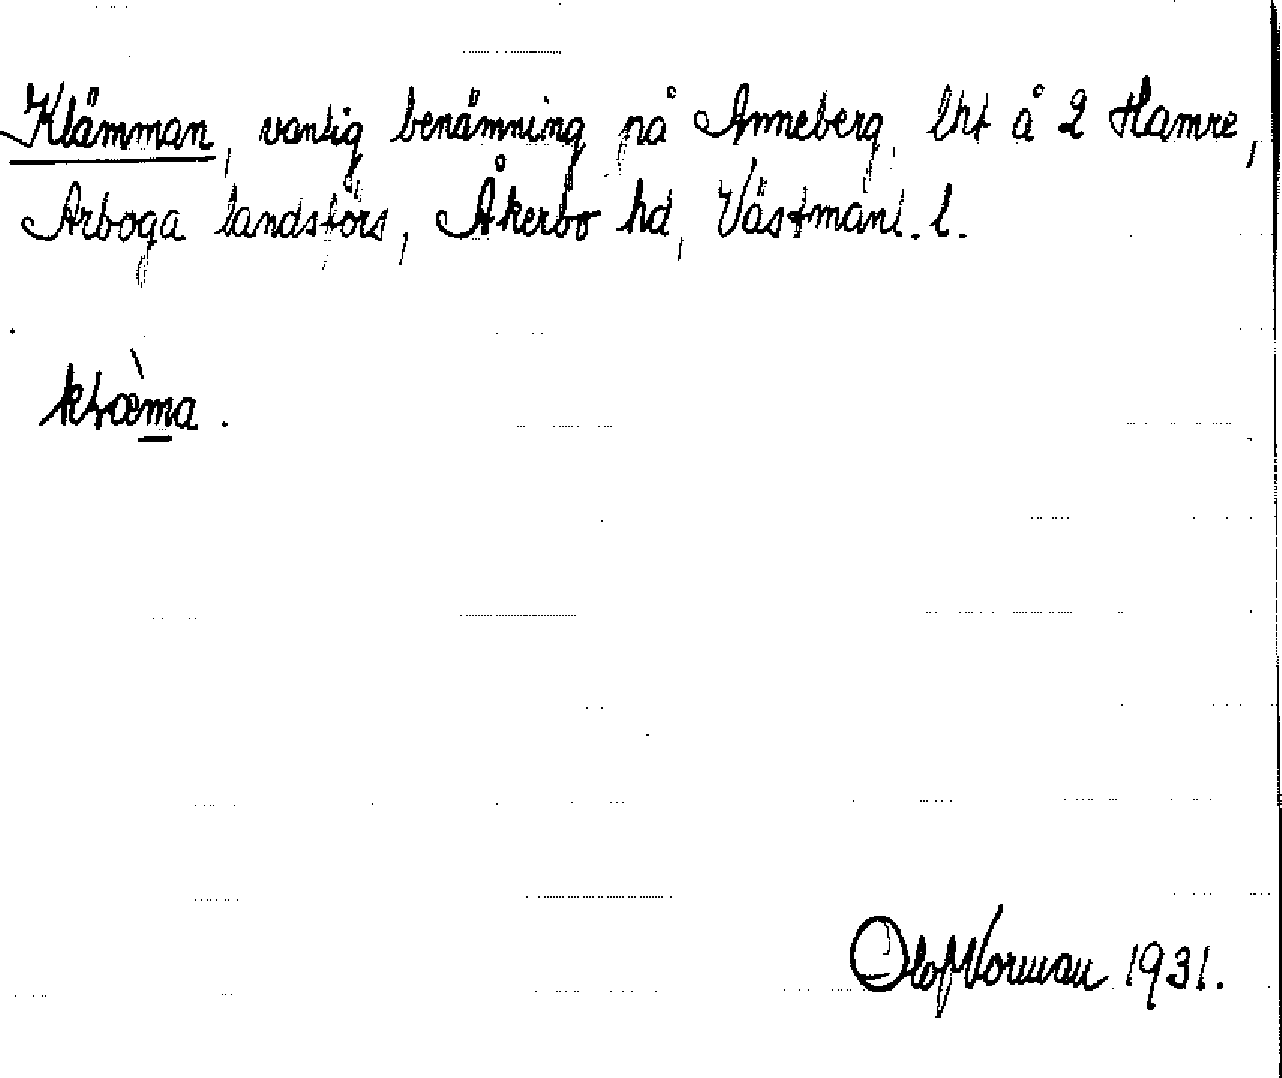 Klämman, vanlig benämning på Anneberg, lht å 2 Hamre,
Arboga landsförs, Åkerbo hd, Västmanl. l.
klæ̀m̲a.
Olof Norman 1931.